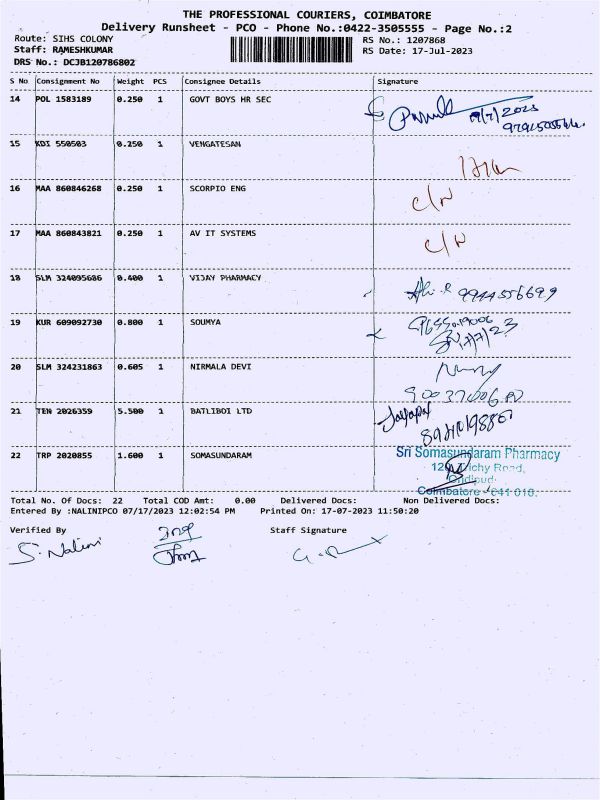 THE PROFESSIONAL COURIERS, COIMBATORE
Delivery Runsheet - PCO - Phone No.:0422-3505555 - Page No.:2
Route: SIHS COLONY RS No.: 1207868
Staff: RAMESHKUMAR RS Date: 17-Jul-2023
DRS No.: DCJB120786802
S No Consignment No Weight PCS Consignee Details Signature
14 POL 1583189 0.250 1 GOVT BOYS HR SEC
15 KDI 550503 0.250 1 VENGATESAN
16 MAA 860846268 0.250 1 SCORPIO ENG C/N
17 MAA 860843821 0.250 1 AV IT SYSTEMS C/N
18 SLM 324095686 0.400 1 VIJAY PHARMACY 9944556699
19 KUR 609092730 0.800 1 SOUMYA
17/7/23
20 SLM 324231863 0.605 1 NIRMALA DEVI
21 TEN 2026359 5.500 1 BATLIBOI LTD
22 TRP 2020855 1.600 1 SOMASUNDARAM Sri Somasundaram Pharmacy
Coimbatore - 641 018.
Total No. Of Docs: 22 Total COD Amt: 0.00 Delivered Docs: Non Delivered Docs:
Entered By :NALINIPCO 07/17/2023 12:02:54 PM Printed On: 17-07-2023 11:50:20
Verified By Staff Signature
S. Nalini